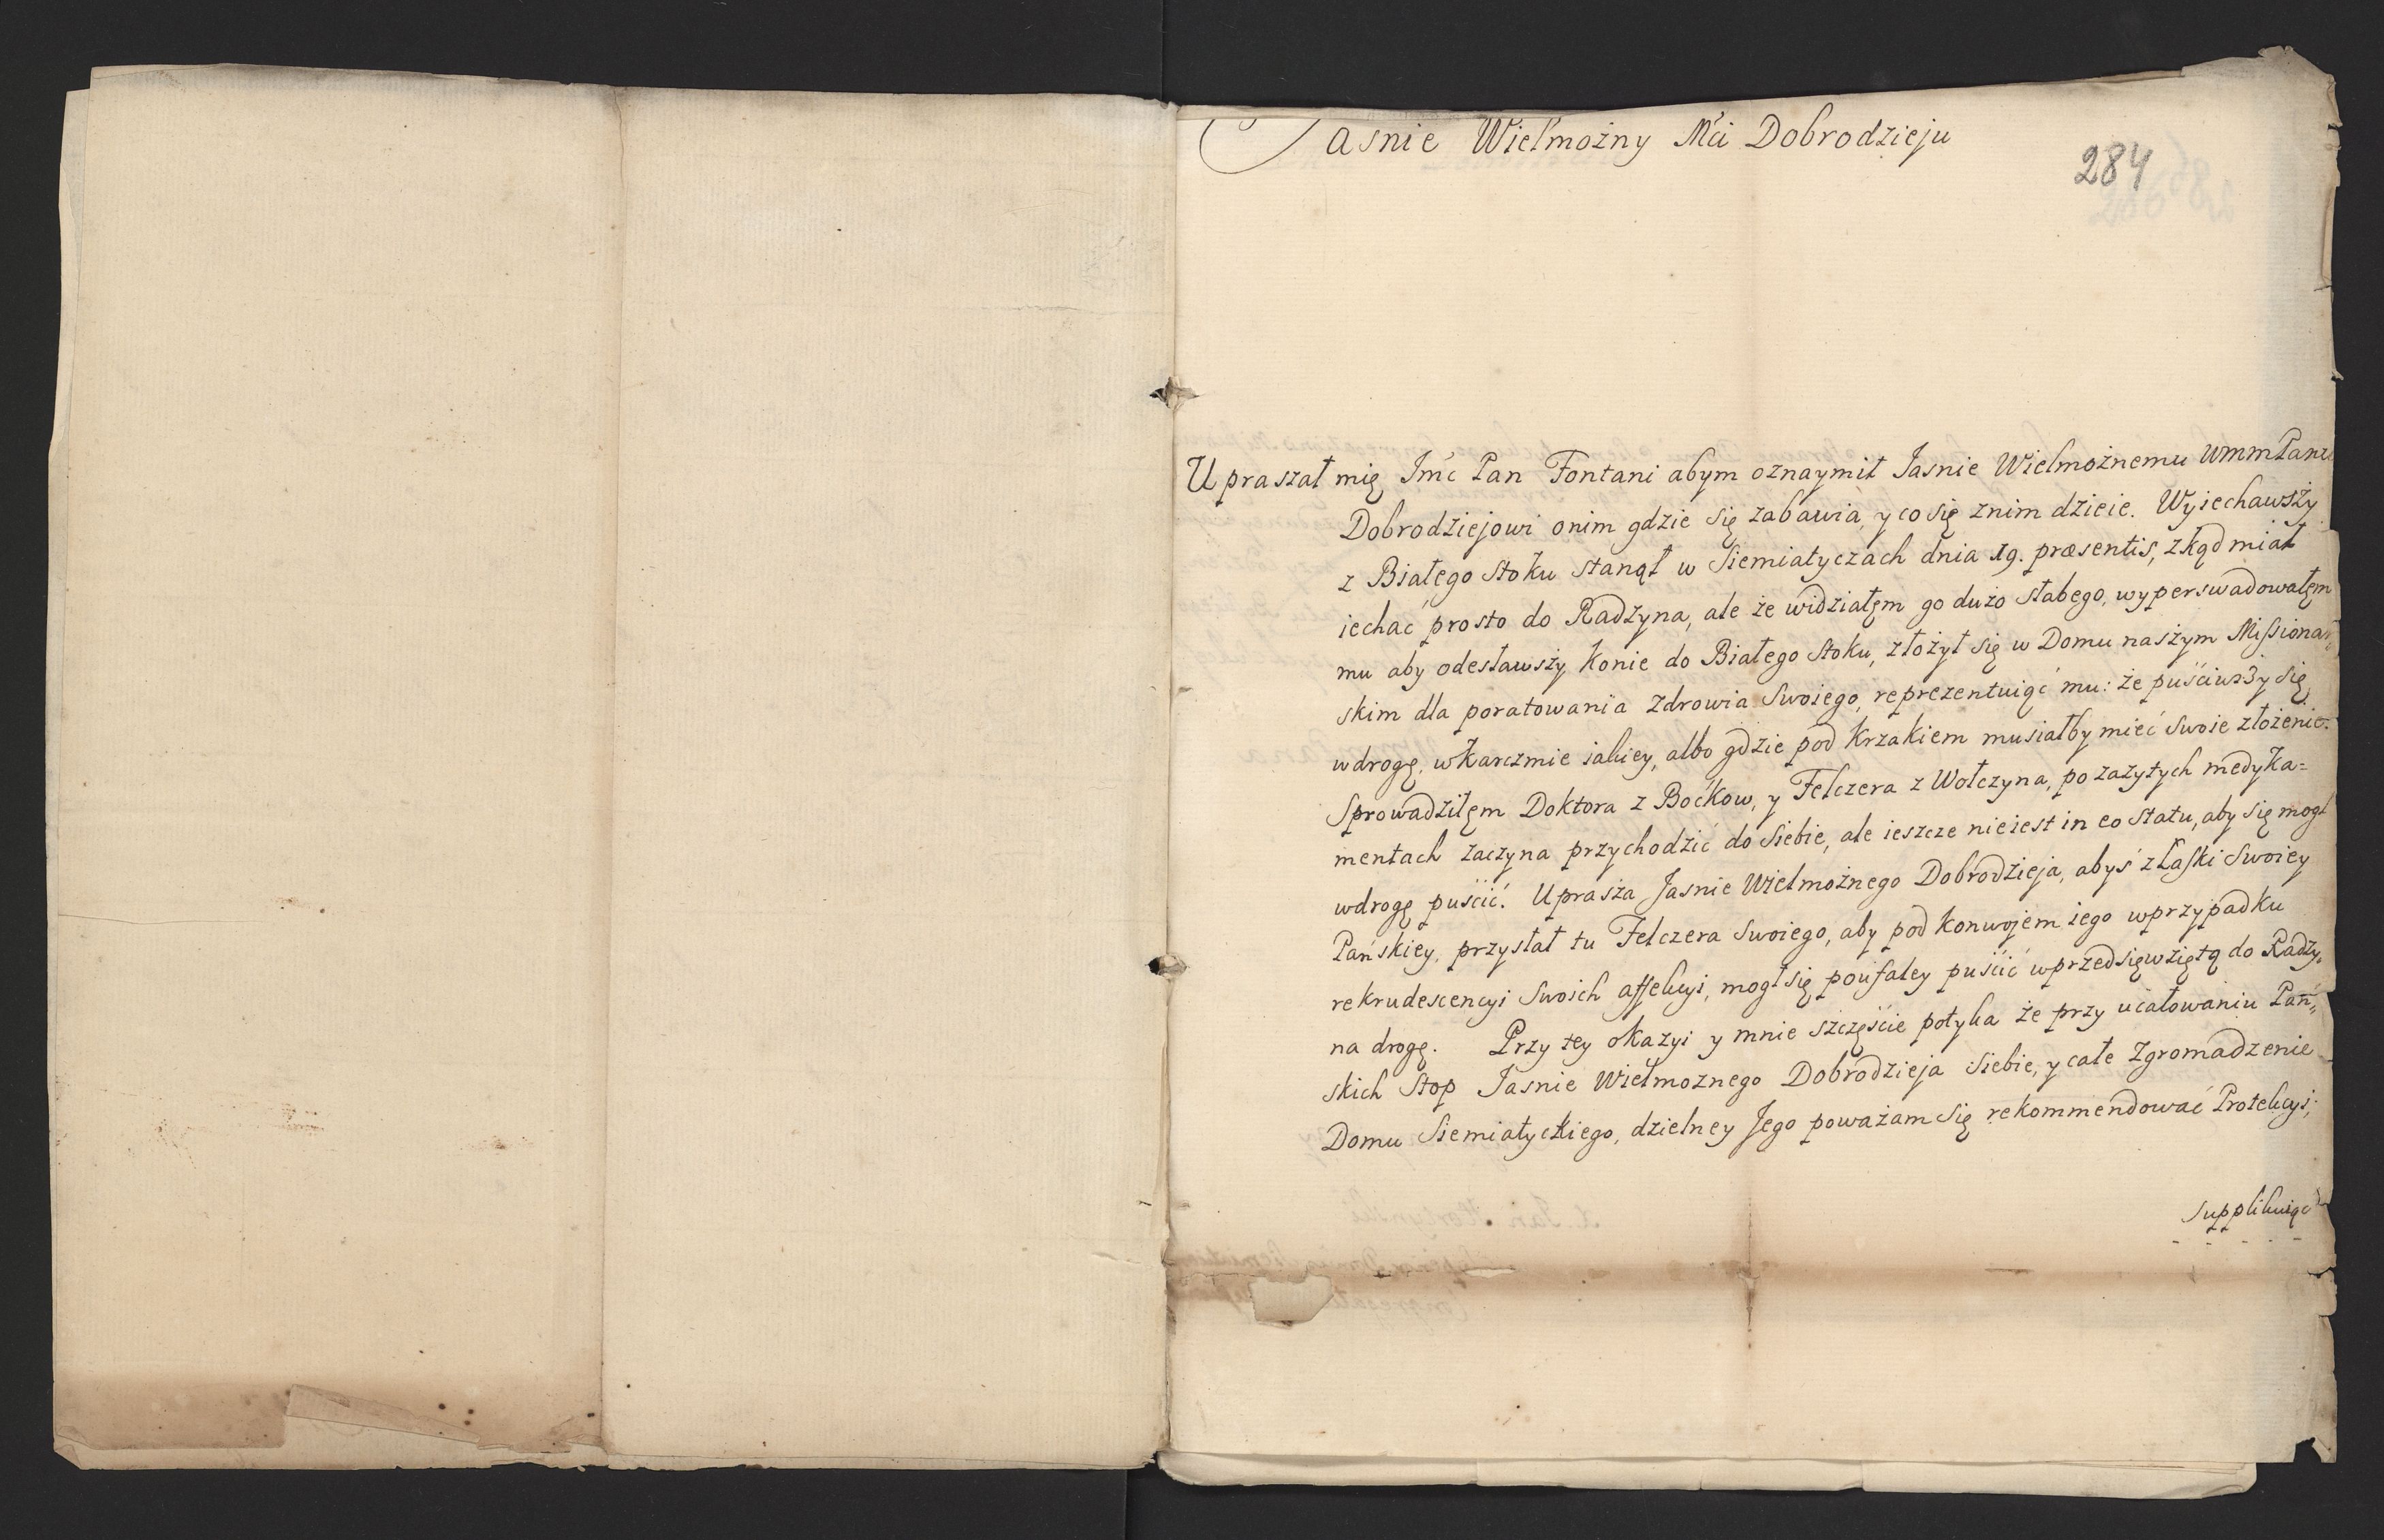 Jasnie Wielmożny Mći Dobrodzieju
284
Upraszał mię Imć Pan Fontani abym oznaymił Jasnie Wielmożnemu WMMPanu
Dobrodziejowi onim gdzie się zabawia, y co się znim dzieie. Wyiechawszy
z Białego Stoku stanął w Siemiatyczach dnia 19. præsentis, zkąd miał
iechać prosto do Radzyna, ale że widziałęm go dużo słabego, wyperswadowałęm
mu aby odesławszy konie do Białego Stoku, złożył się w Domu naszym Missionar„
skim dla poratowania zdrowia swoiego, reprezentuiąc mu: że puściwszy się
wdrogę, wkarczmie iakiey, albo gdzie pod krzakiem musiałby mieć swoie złożenie.
Sprowadziłęm Doktora z Boćkow, y Felczera z Wołczyna, po zażytych medyka=
mentach zaczyna przychodzić do siebie, ale ieszcze nieiest in eo statu, aby się mogł
wdrogę puścić. Uprasza Jasnie Wielmożnego Dobrodzieja, abyś z Łaski swoiey
Pańskiey, przysłał tu Felczera swoiego, aby pod konwojem iego wprzypadku
rekrudescencyi swoich affekcyi, mogł się poufaley puścić wprzedsięwziętą do Radzy„
na drogę. Przy tey okazyi y mnie szczęście potyka że przy ucałowaniu Pań„
skich Stop Jasnie Wielmożnego Dobrodzieja siebie, y całe Zgromadzenie
Domu Siemiatyckiego, dzielney Jego poważam się rekommendować Protekcyi,
supplikuiąc